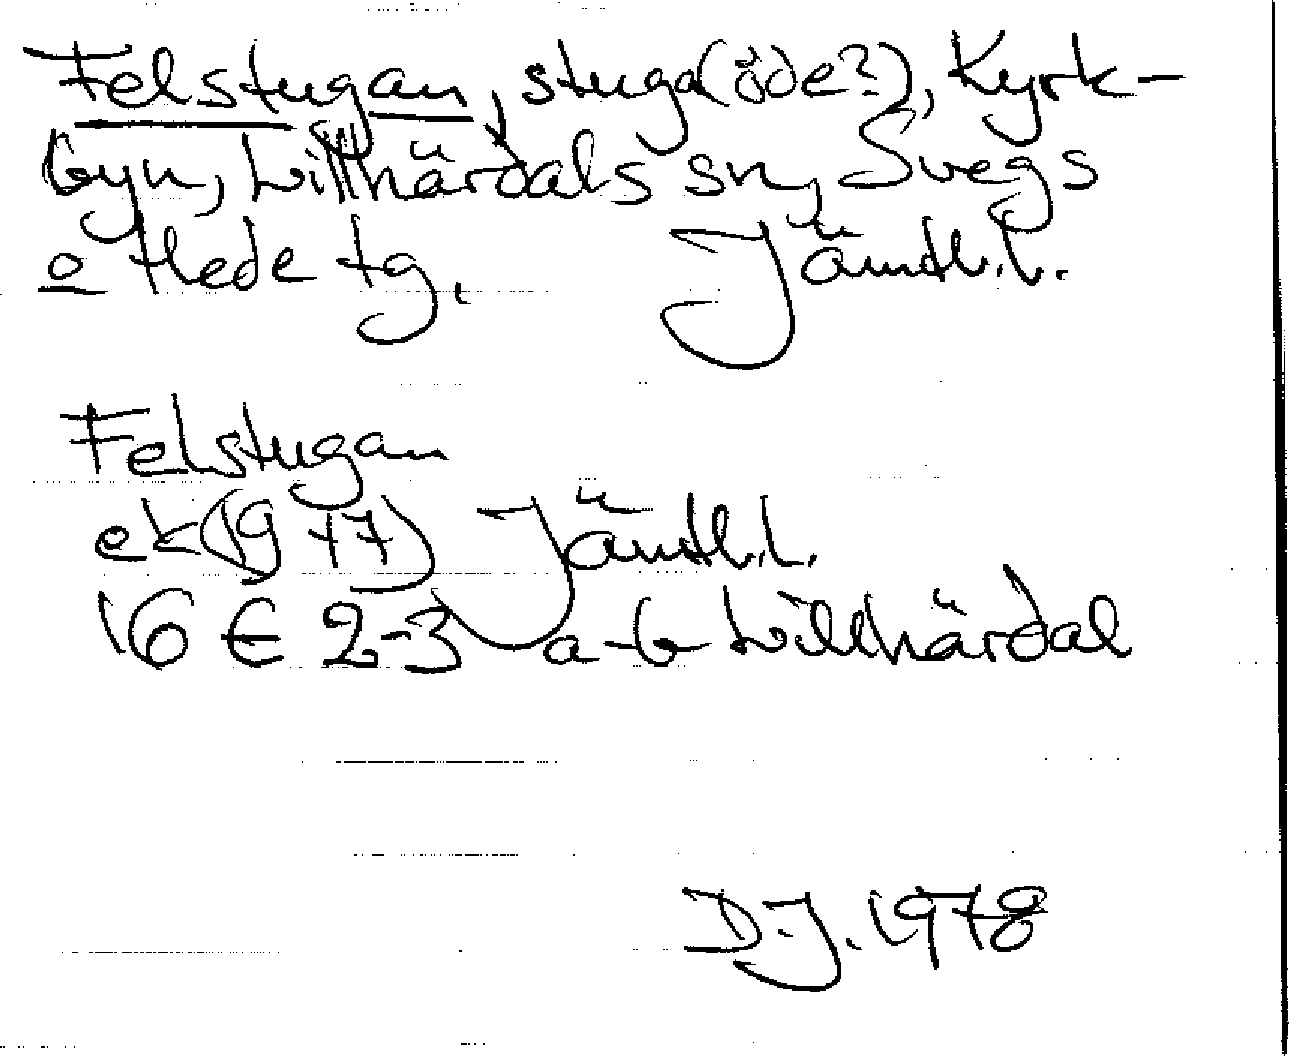 Felstugan, stuga (öde?), Kyrk-
byn, Lillhärdals sn, Svegs
o Hede tg. Jämtl.l.
Felstugan
ek (1977) Jämtl.l.
16 E 2-3 a-b Lillhärdal
D.J. 1978